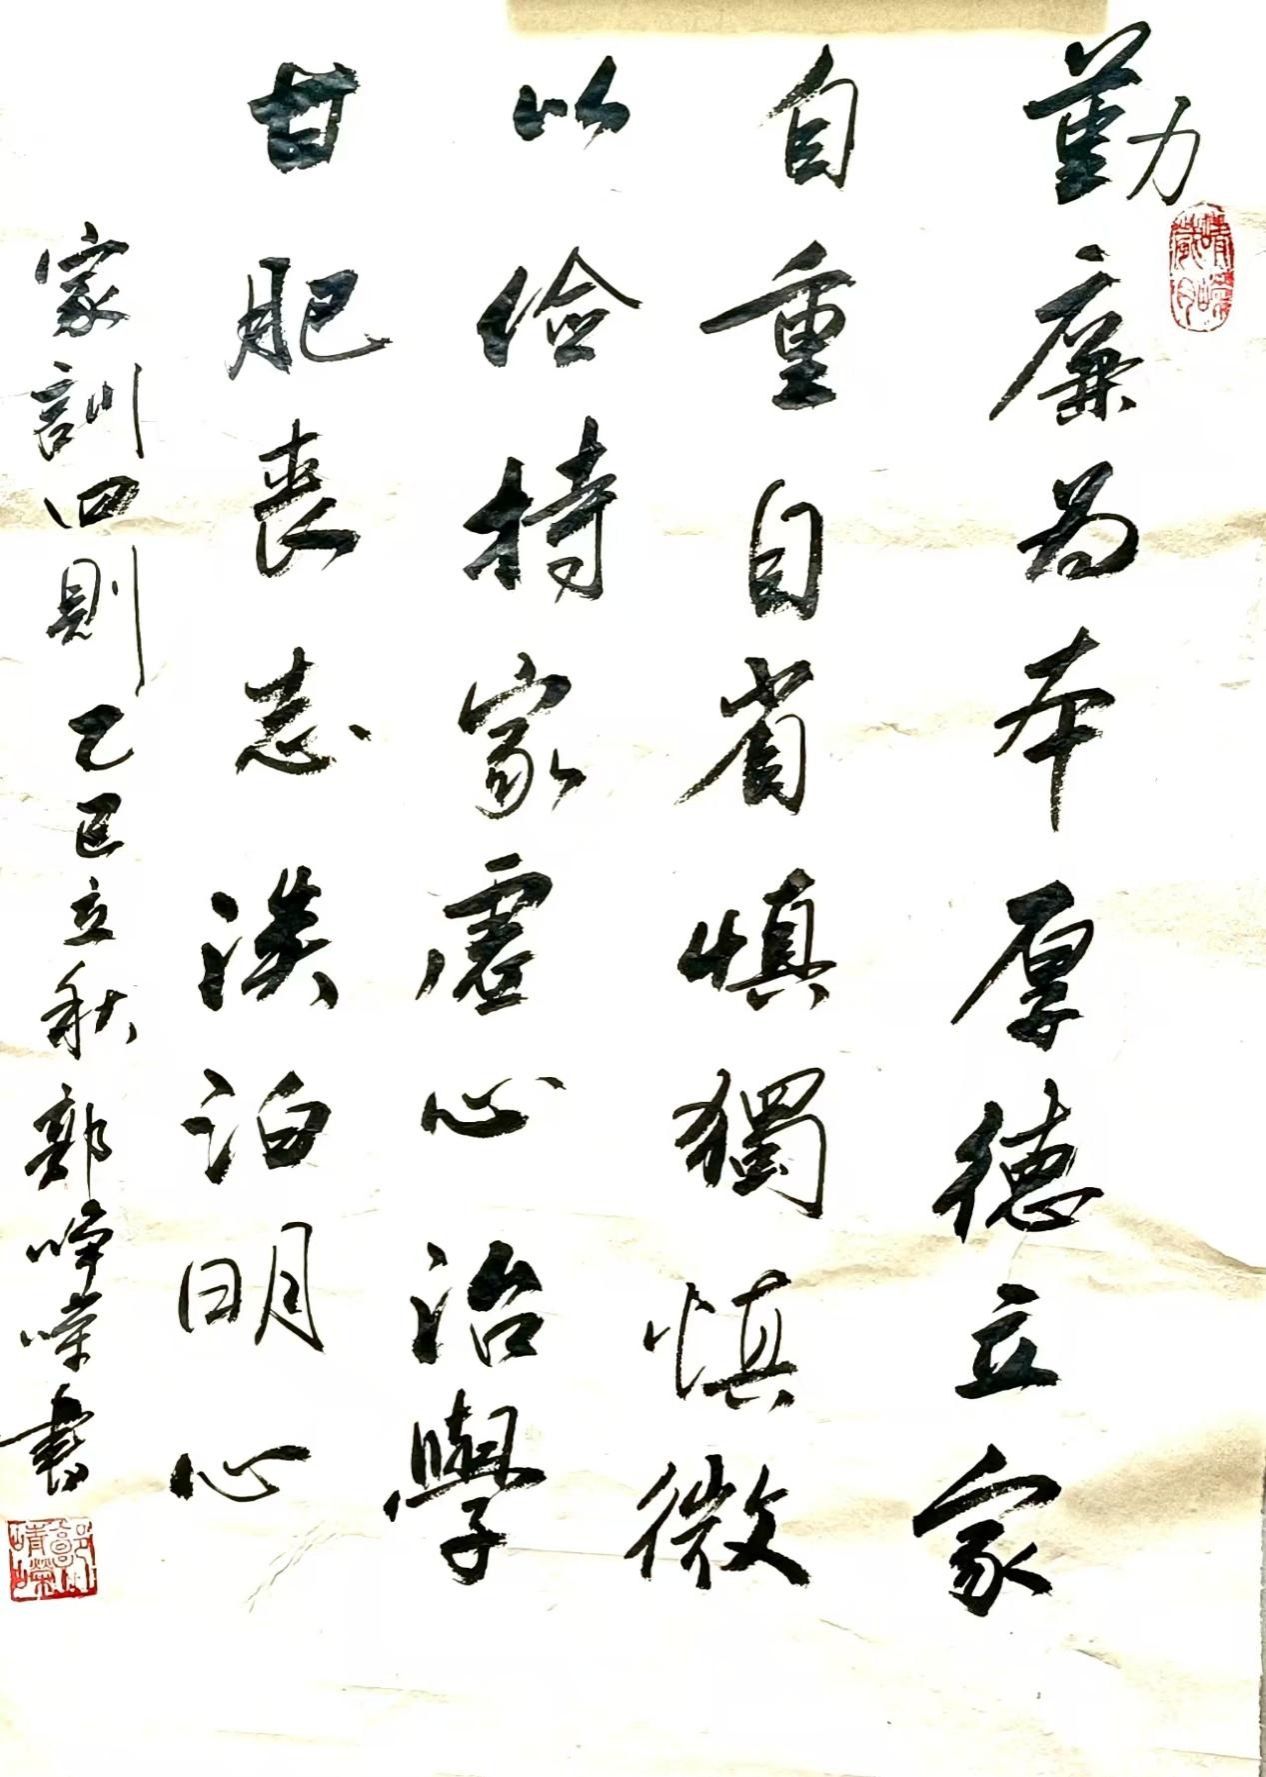 勤廉为本厚德立家
自重自省慎獨慎微
以儉持家虚心治學
甘肥丧志淡泊明心
家訓四則乙巳立秋郭
書